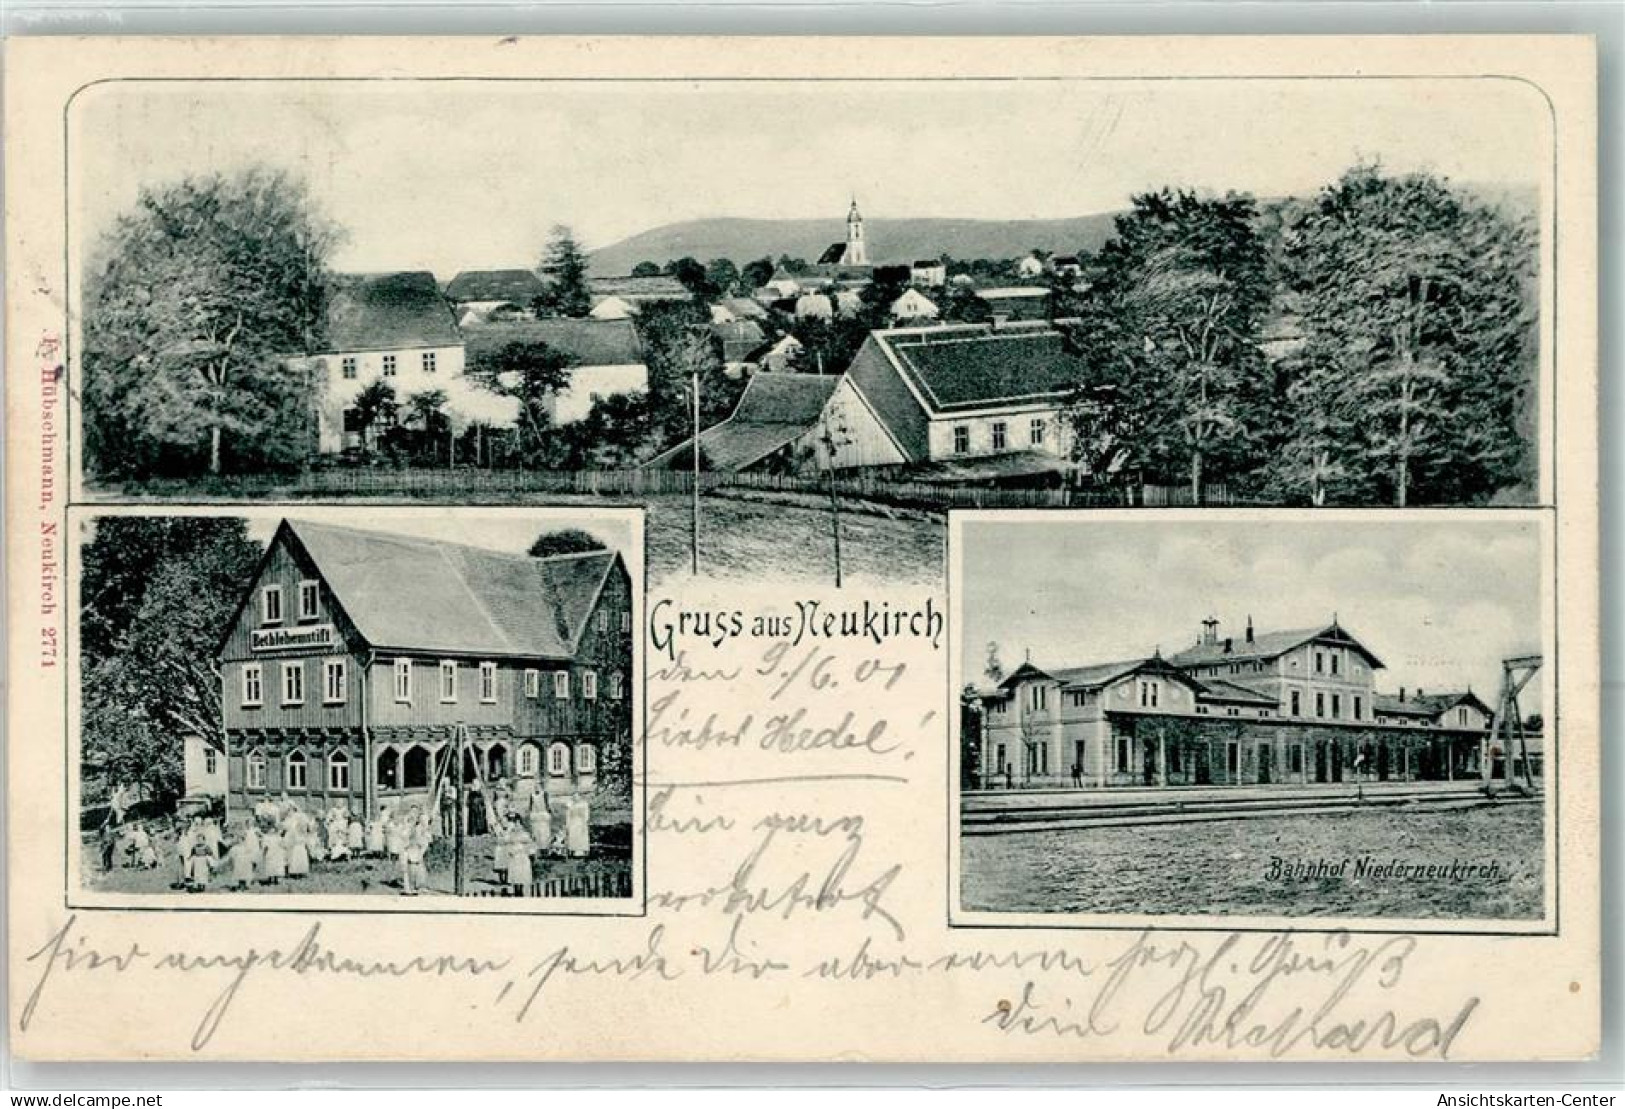 Fr. Hübschmann, Neukirch 2771
Bethlehemstift
Gruss aus Neukirch
den 9./6. 01
Liebes Hedel!
Bin ganz
hier angekommen, sende Dir aber einen herzl. Gruß
Dein Richard
Bahnhof Niederneukirch
Ansichtskarten-Center